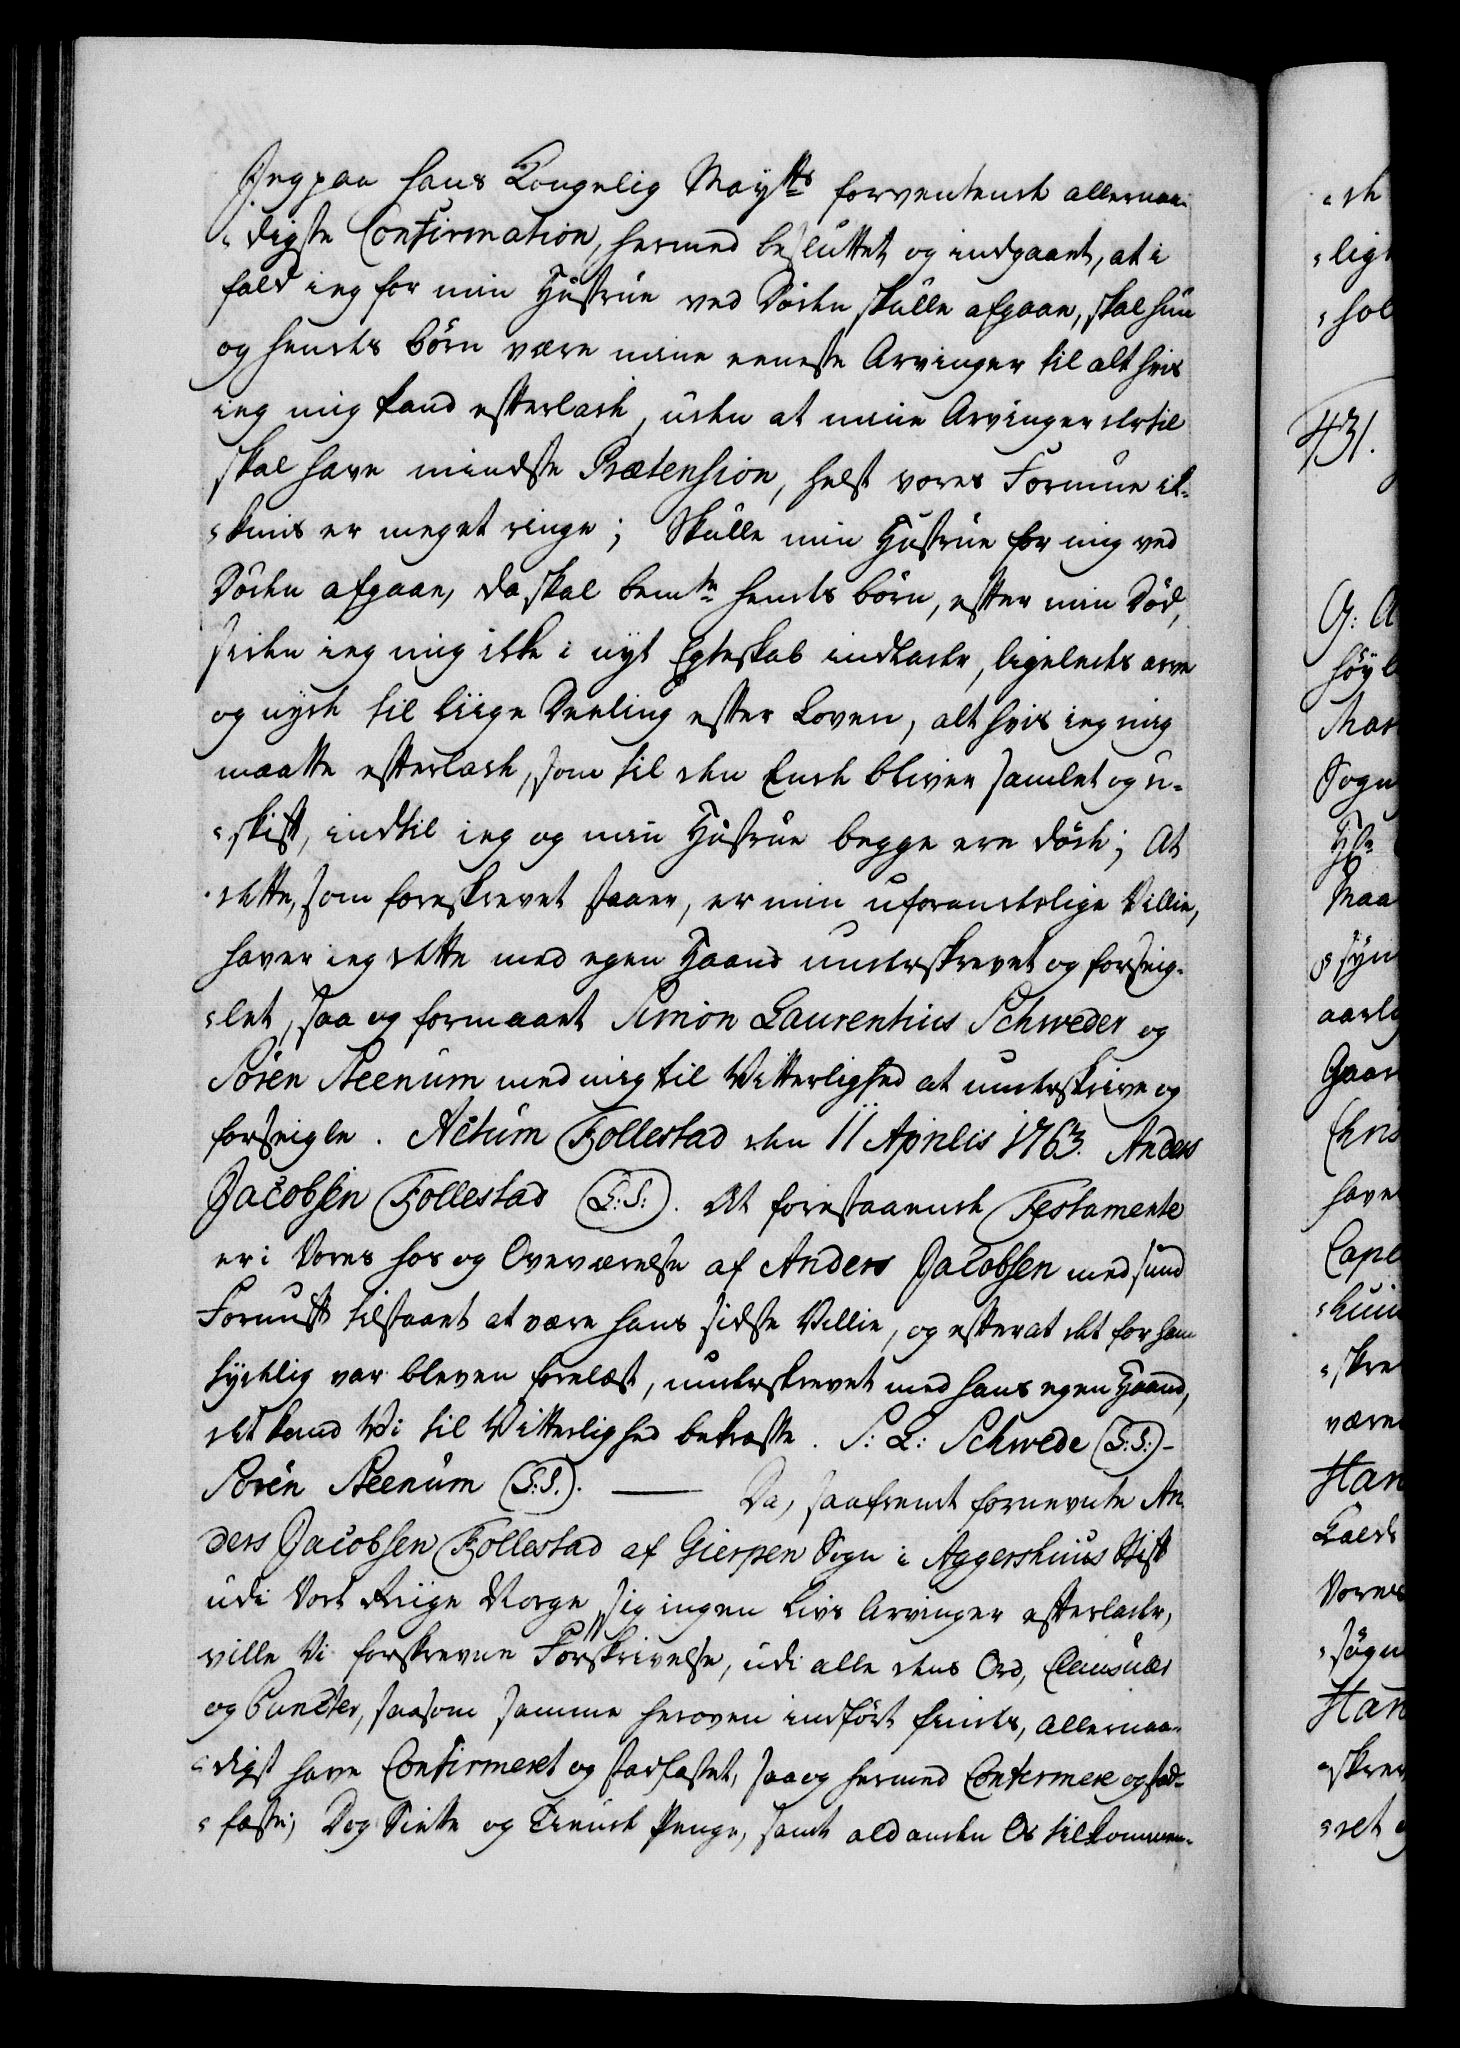 Jeg paa Hans Kongelig Maÿtts forventende allernaa-
digste Confirmation, hermed besluttet og indgaaet, at i
fald jeg for min Hustrüe ved Döden skulle afgaae, skal hün
og hendes börn være mine eeneste Arvinger til alt hvis
ieg mig kand efterlade, uden at mine Arvinger dertil
skal have mindste Prætension, helst vores Formue ik-
kuns er meget ringe; Skulle min Hustrüe for mig ved
Döden afgaae, da skal bemte hendes börn, efter min Död,
siden ieg mig ikke i nÿt Egteskab indlader, ligeledes arve
og nÿde til liige Deeling efter Loven, alt hvis ieg mig
maatte efterlade, som til den Ende bliver samlet og u-
skift, indtil ieg og min Hustrüe begge ere döde; At
dette, som foreskrevet staaer, er min uforanderlige Villie,
haver ieg dette med egen Haand underskrevet og forseig-
let, saa og formaaet Simon Laurentius Schweder og
Sören Steenüm med mig til Vitterlighed at underskrive og
forseigle. Actüm Follestad den 11 Aprilis 1763. Anders
Jacobsen Follestad (L:S:). At forestaaende Testamente
er i Vores hos og Overværelse af Anders Jacobsen med sund
Fornuft tilstaaet at være hans sidste Villie, og efter at det for ham
tydelig var bleven forelæst, underskrevet med hans egen Haand,
det kand Vi til Vitterlighed bekræfte. S: L: Schwede (L:S:)-
Sören Steenüm (L:S:). — Da, saafremt fornevnte An
ders Jacobsen Follestad af Gierpen Sogn i Aggershuus Stift
udi Vort Riige Norge, sig ingen Livs Arvinger efterlader,
ville Vi forskrevne Forskrivelse, udi alle dens Ord, Clausuler
og Puncter, saasom samme heroven indfört findes, Allernaa-
digst have Confirmeret og stadfæstet, saa og hermed Confirmere og stad-
fæste; Dog Siette og Tiende Penge, samt ald anden Os tilkommen-